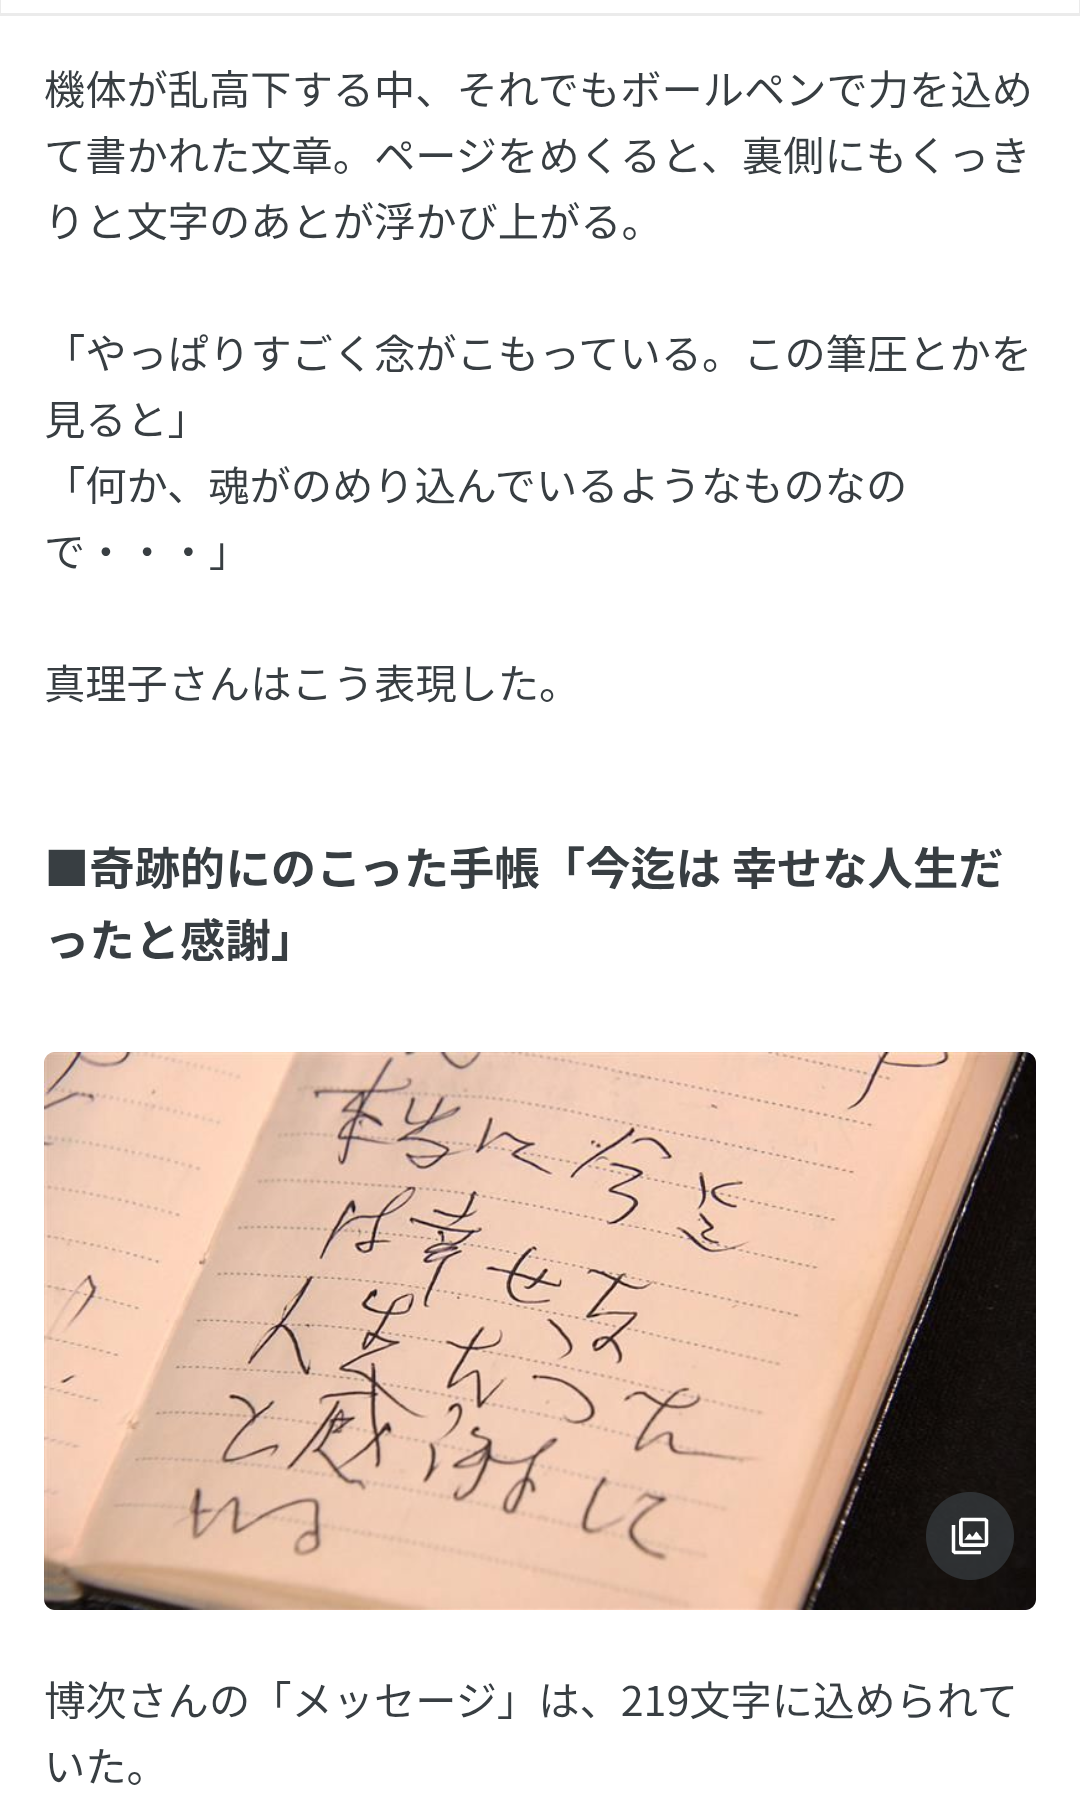 機体が乱高下する中、それでもボールペンで力を込め
て書かれた文章。ページをめくると、裏側にもくっき
りと文字のあとが浮かび上がる。
「やっぱりすごく念がこもっている。この筆圧とかを
見ると」
「何か、魂がのめり込んでいるようなものなの
で・・・」
真理子さんはこう表現した。
■奇跡的にのこった手帳「今迄は 幸せな人生だ
ったと感謝」
本当に今迄
は幸せな
人生だった
と感謝して
いる
博次さんの「メッセージ」は、219文字に込められて
いた。